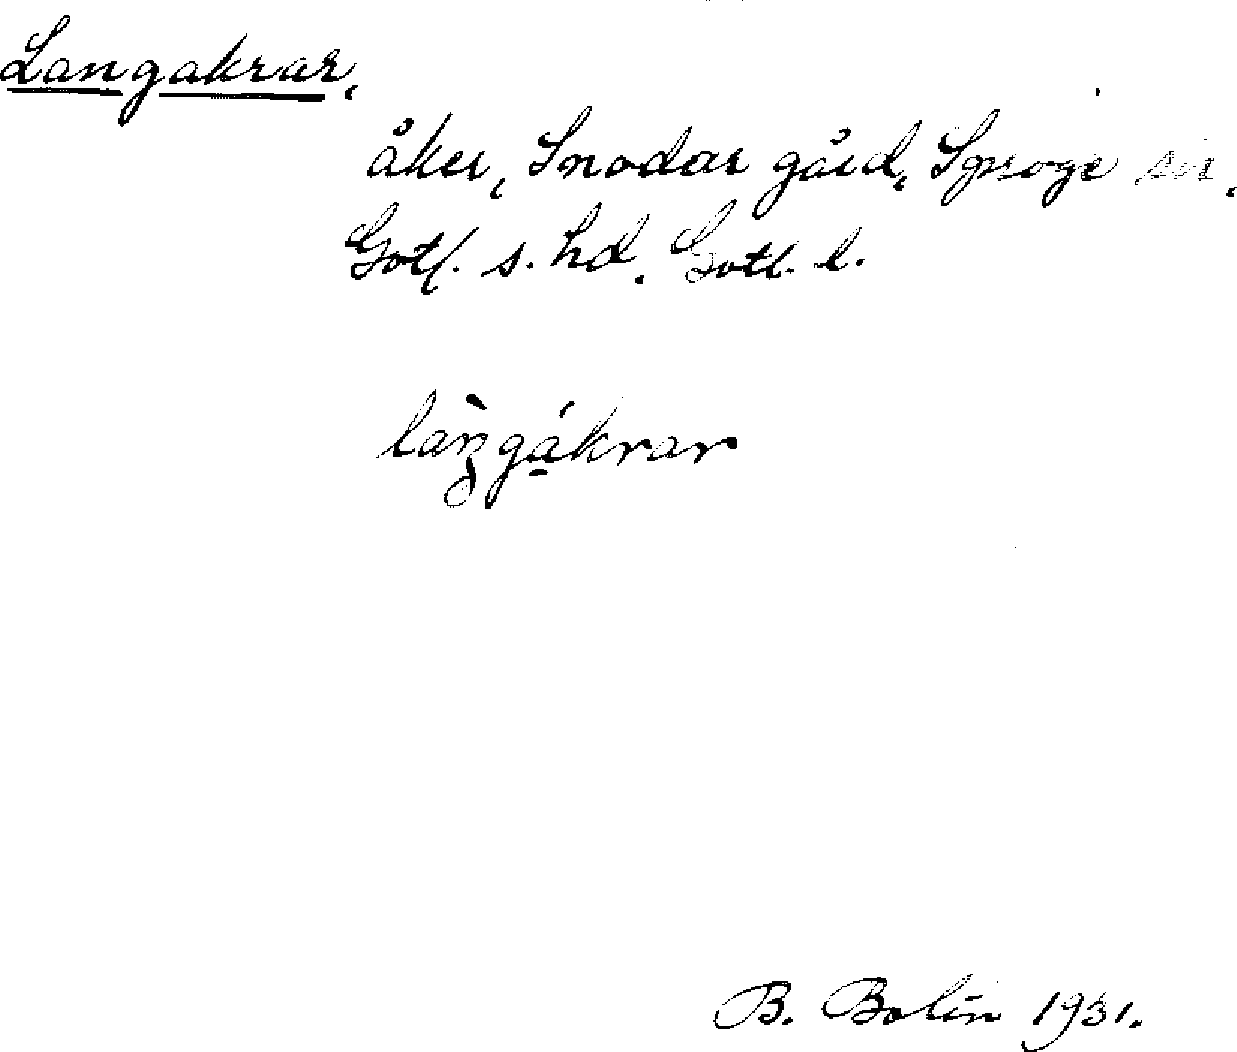 Langakrar,
åker, Snodar gård, Sproge sn,
Gotl. s. hd. Gotl. l.
làngákrar
B. Bolin 1931.